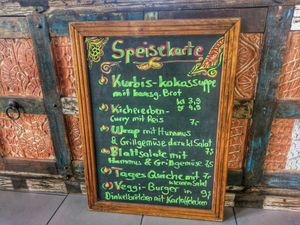 Speisekarte
Kürbis-kokossuppe
mit hausg. Brot
kl 3,9
gr 4,9
Kichererbsen-
Curry mit Reis 7,-
Wrap mit Hummus
& Grillgemüse dazu kl Salat
Blattsalate mit 7,5
Hummus & Grillgemüse 7,5
Tages Quiche mit 7,-
kleinem Salat
Veggi-Burger in 9,-
Dinkelbrötchen mit Kartoffelecken